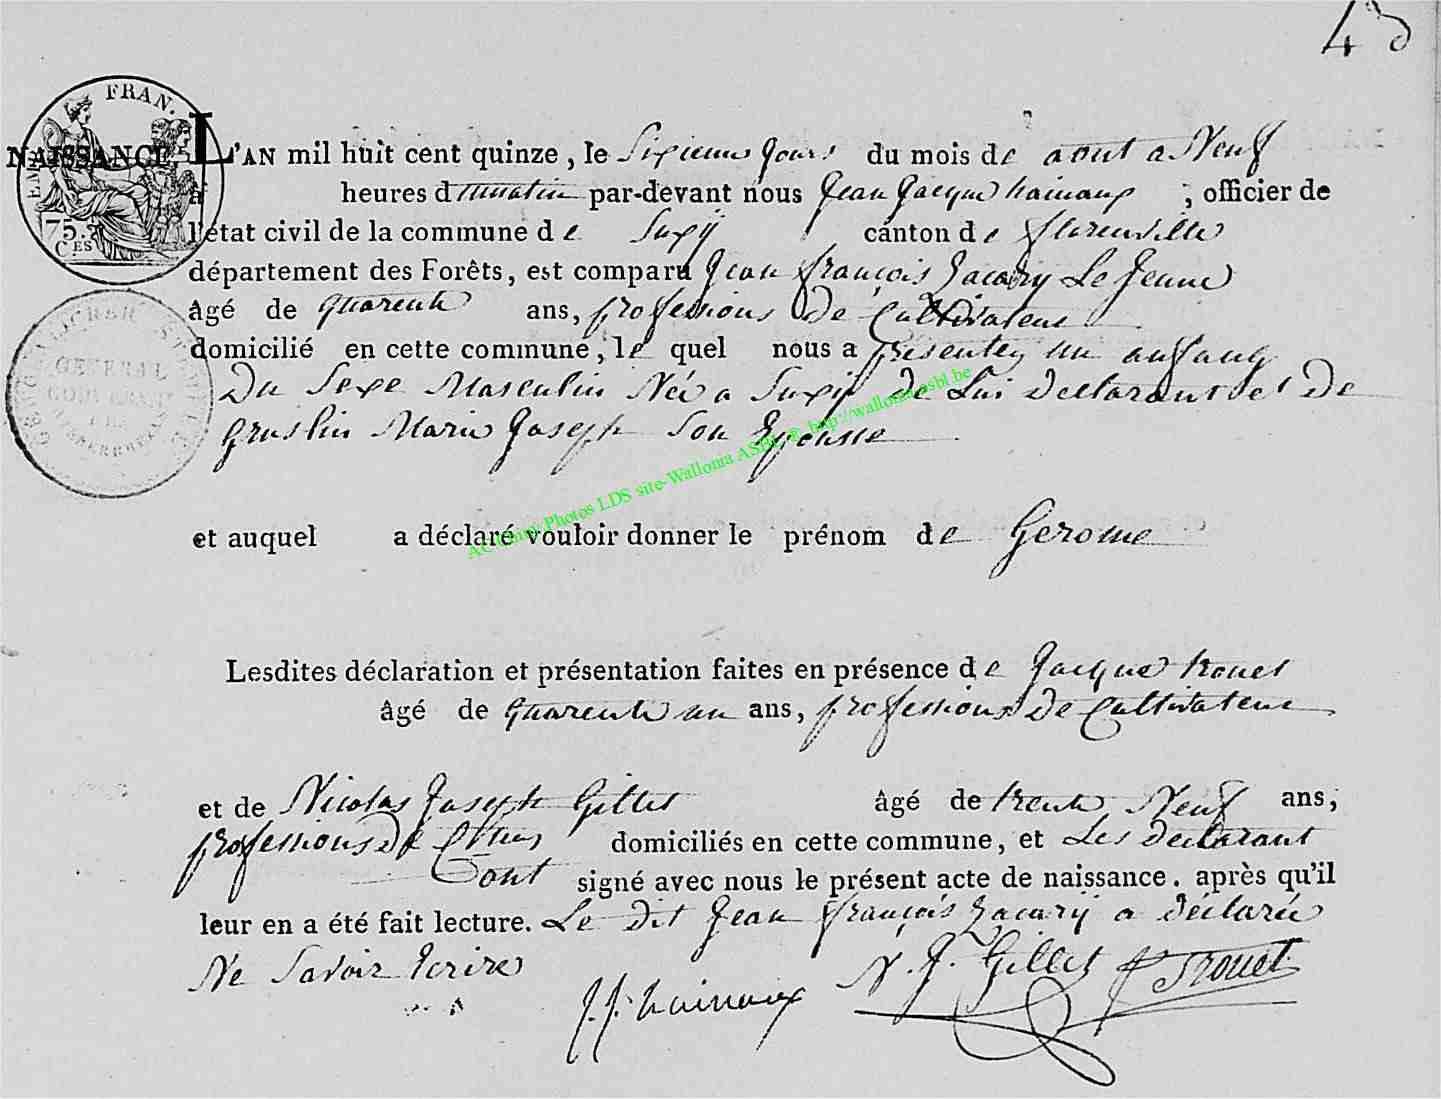 48
FRAN.
75.
C.ES
NAISSANCE.
L'AN mil huit cent quinze, le Sixieme Jours du mois de aout a Neuf
heures du matin par-devant nous Jean Jacque hainaux ; officier de
l'état civil de la commune de Suxÿ canton de florenville
département des Forêts, est comparu Jean françois Zacary Le Jeune
âgé de quarente ans, professions de Cultivateur
domicilié en cette commune, le quel nous a presentez un anfang
Du Sexe Masculin Née a Suxÿ de Lui declarant et de
Gruslin Marie Joseph Son Epousse
AC Chiny Photos LDS site-Wallonia ASBL @ http://wallonia-asbl.be
et auquel a déclaré vouloir donner le prénom de Gerome
Lesdites déclaration et présentation faites en présence de Jacque trouet
âgé de quarente un ans, professions de Cultivateur
et de Nicolas Joseph Gillet âgé de trente Neuf ans,
professions de domiciliés en cette commune, et Les declarant
Sont signé avec nous le présent acte de naissance, après qu'il
leur en a été fait lecture. Le dit Jean françois Zacarÿ a déclarée
Ne Savoir Ecrire
J. J. hainaux N. J. Gillet J Trouet